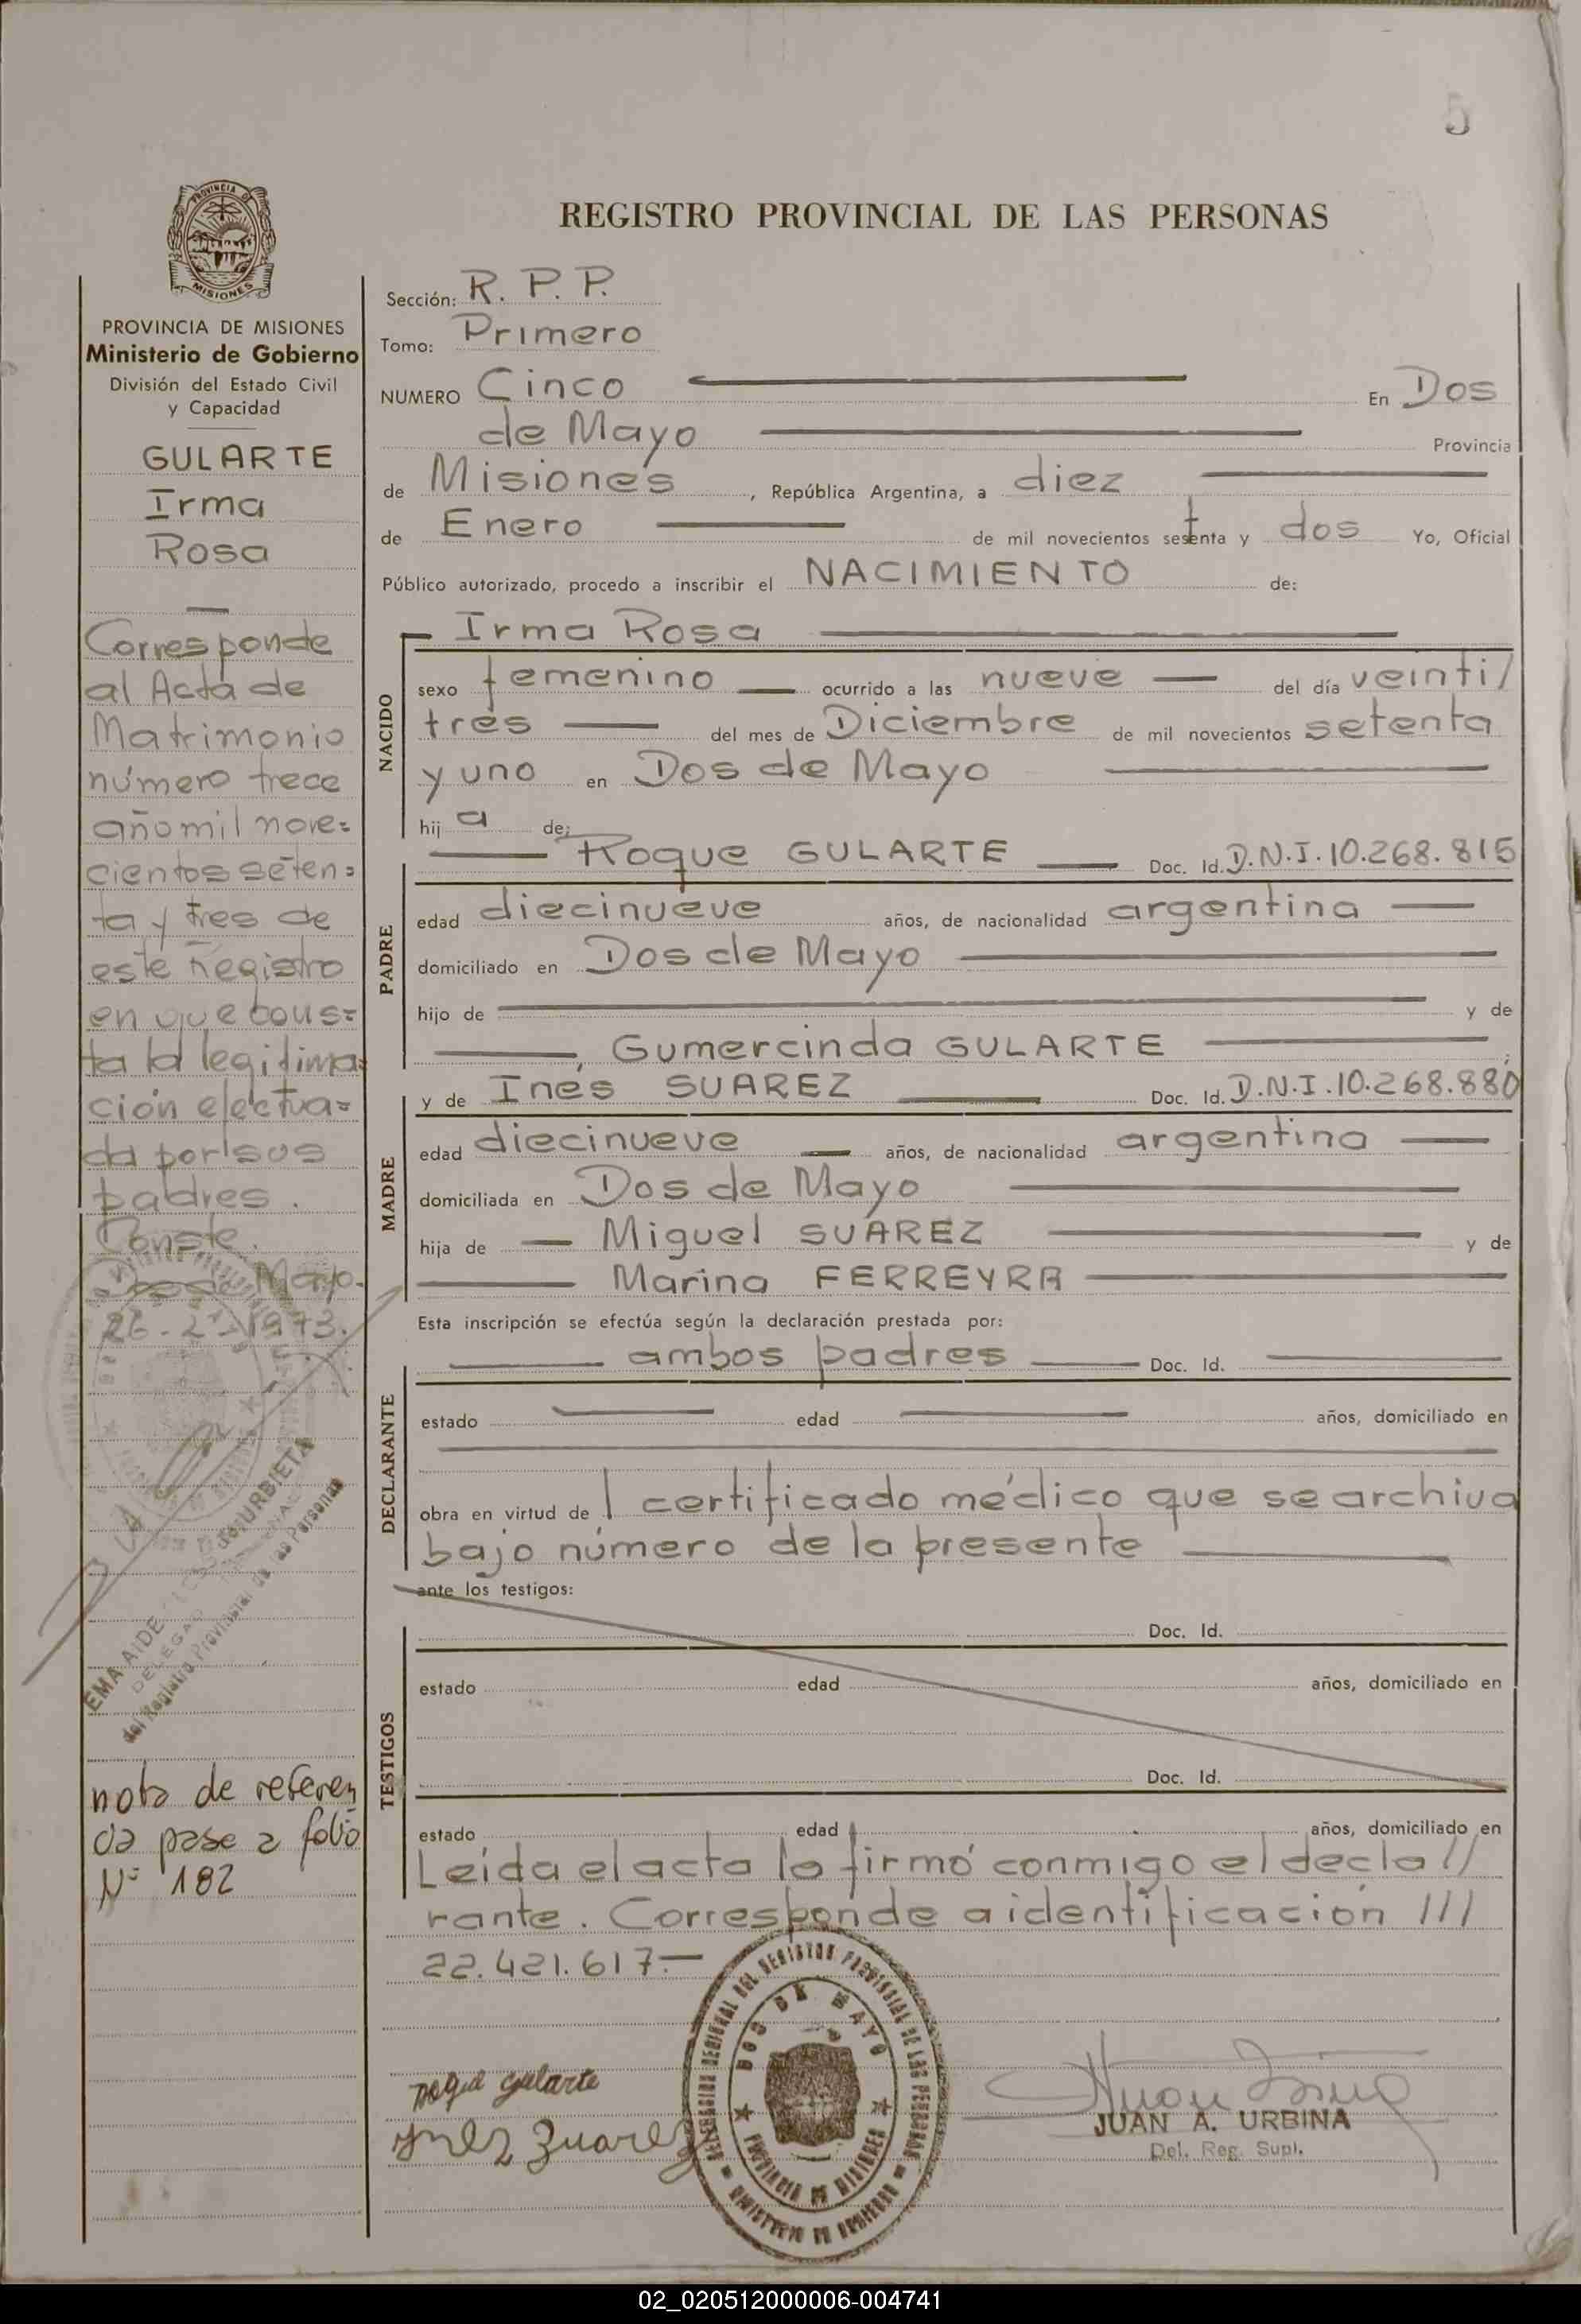 5
PROVINCIA DE
MISIONES
REGISTRO PROVINCIAL DE LAS PERSONAS
PROVINCIA DE MISIONES
Ministerio de Gobierno
División del Estado Civil
y Capacidad
GULARTE
Irma
Rosa
Corresponde
al Acta de
Matrimonio
número trece
año mil nove=
cientos seten=
ta y tres de
este Registro
en que cons=
ta la legitima=
ción efectua=
da por sus
padres.
Conste.
Dos de Mayo.
26-2-1973.
EMA AIDE de URBIETA
DELEGAD
del Registro Provincial de las Personas
nota de referen
cia pase a folio
Nº 182
Sección: R. P. P.
Tomo: Primero
NUMERO Cinco En Dos
de Mayo Provincia
de Misiones, República Argentina, a diez
de Enero de mil novecientos setenta y dos Yo, Oficial
Público autorizado, procedo a inscribir el NACIMIENTO de:
Irma Rosa
NACIDO
sexo femenino ocurrido a las nueve del día veinti/
tres del mes de Diciembre de mil novecientos setenta
y uno en Dos de Mayo
hij a de:
Roque GULARTE Doc. Id. D.N.I. 10.268.815
PADRE
edad diecinueve años, de nacionalidad argentina
domiciliado en Dos de Mayo
hijo de y de
Gumercinda GULARTE ;
y de Inés SUAREZ Doc. Id. D.N.I. 10.268.880
MADRE
edad diecinueve años, de nacionalidad argentina
domiciliada en Dos de Mayo
hija de Miguel SUAREZ y de
Marina FERREYRA
Esta inscripción se efectúa según la declaración prestada por:
ambos padres Doc. Id.
DECLARANTE
estado edad años, domiciliado en
obra en virtud de l certificado médico que se archiva
bajo número de la presente
ante los testigos:
Doc. Id.
TESTIGOS
estado edad años, domiciliado en
Doc. Id.
estado edad años, domiciliado en
Leída el acta la firmó conmigo el decla//
rante. Corresponde a identificación ///
22.421.617.-
Roque gularte
ynez zuarez
DELEGACION REGIONAL DEL REGISTRO PROVINCIAL DE LAS PERSONAS
DOS DE MAYO
PROVINCIA DE MISIONES
MINISTERIO DE GOBIERNO
JUAN A. URBINA
Del. Reg. Supl.
02_020512000006-004741